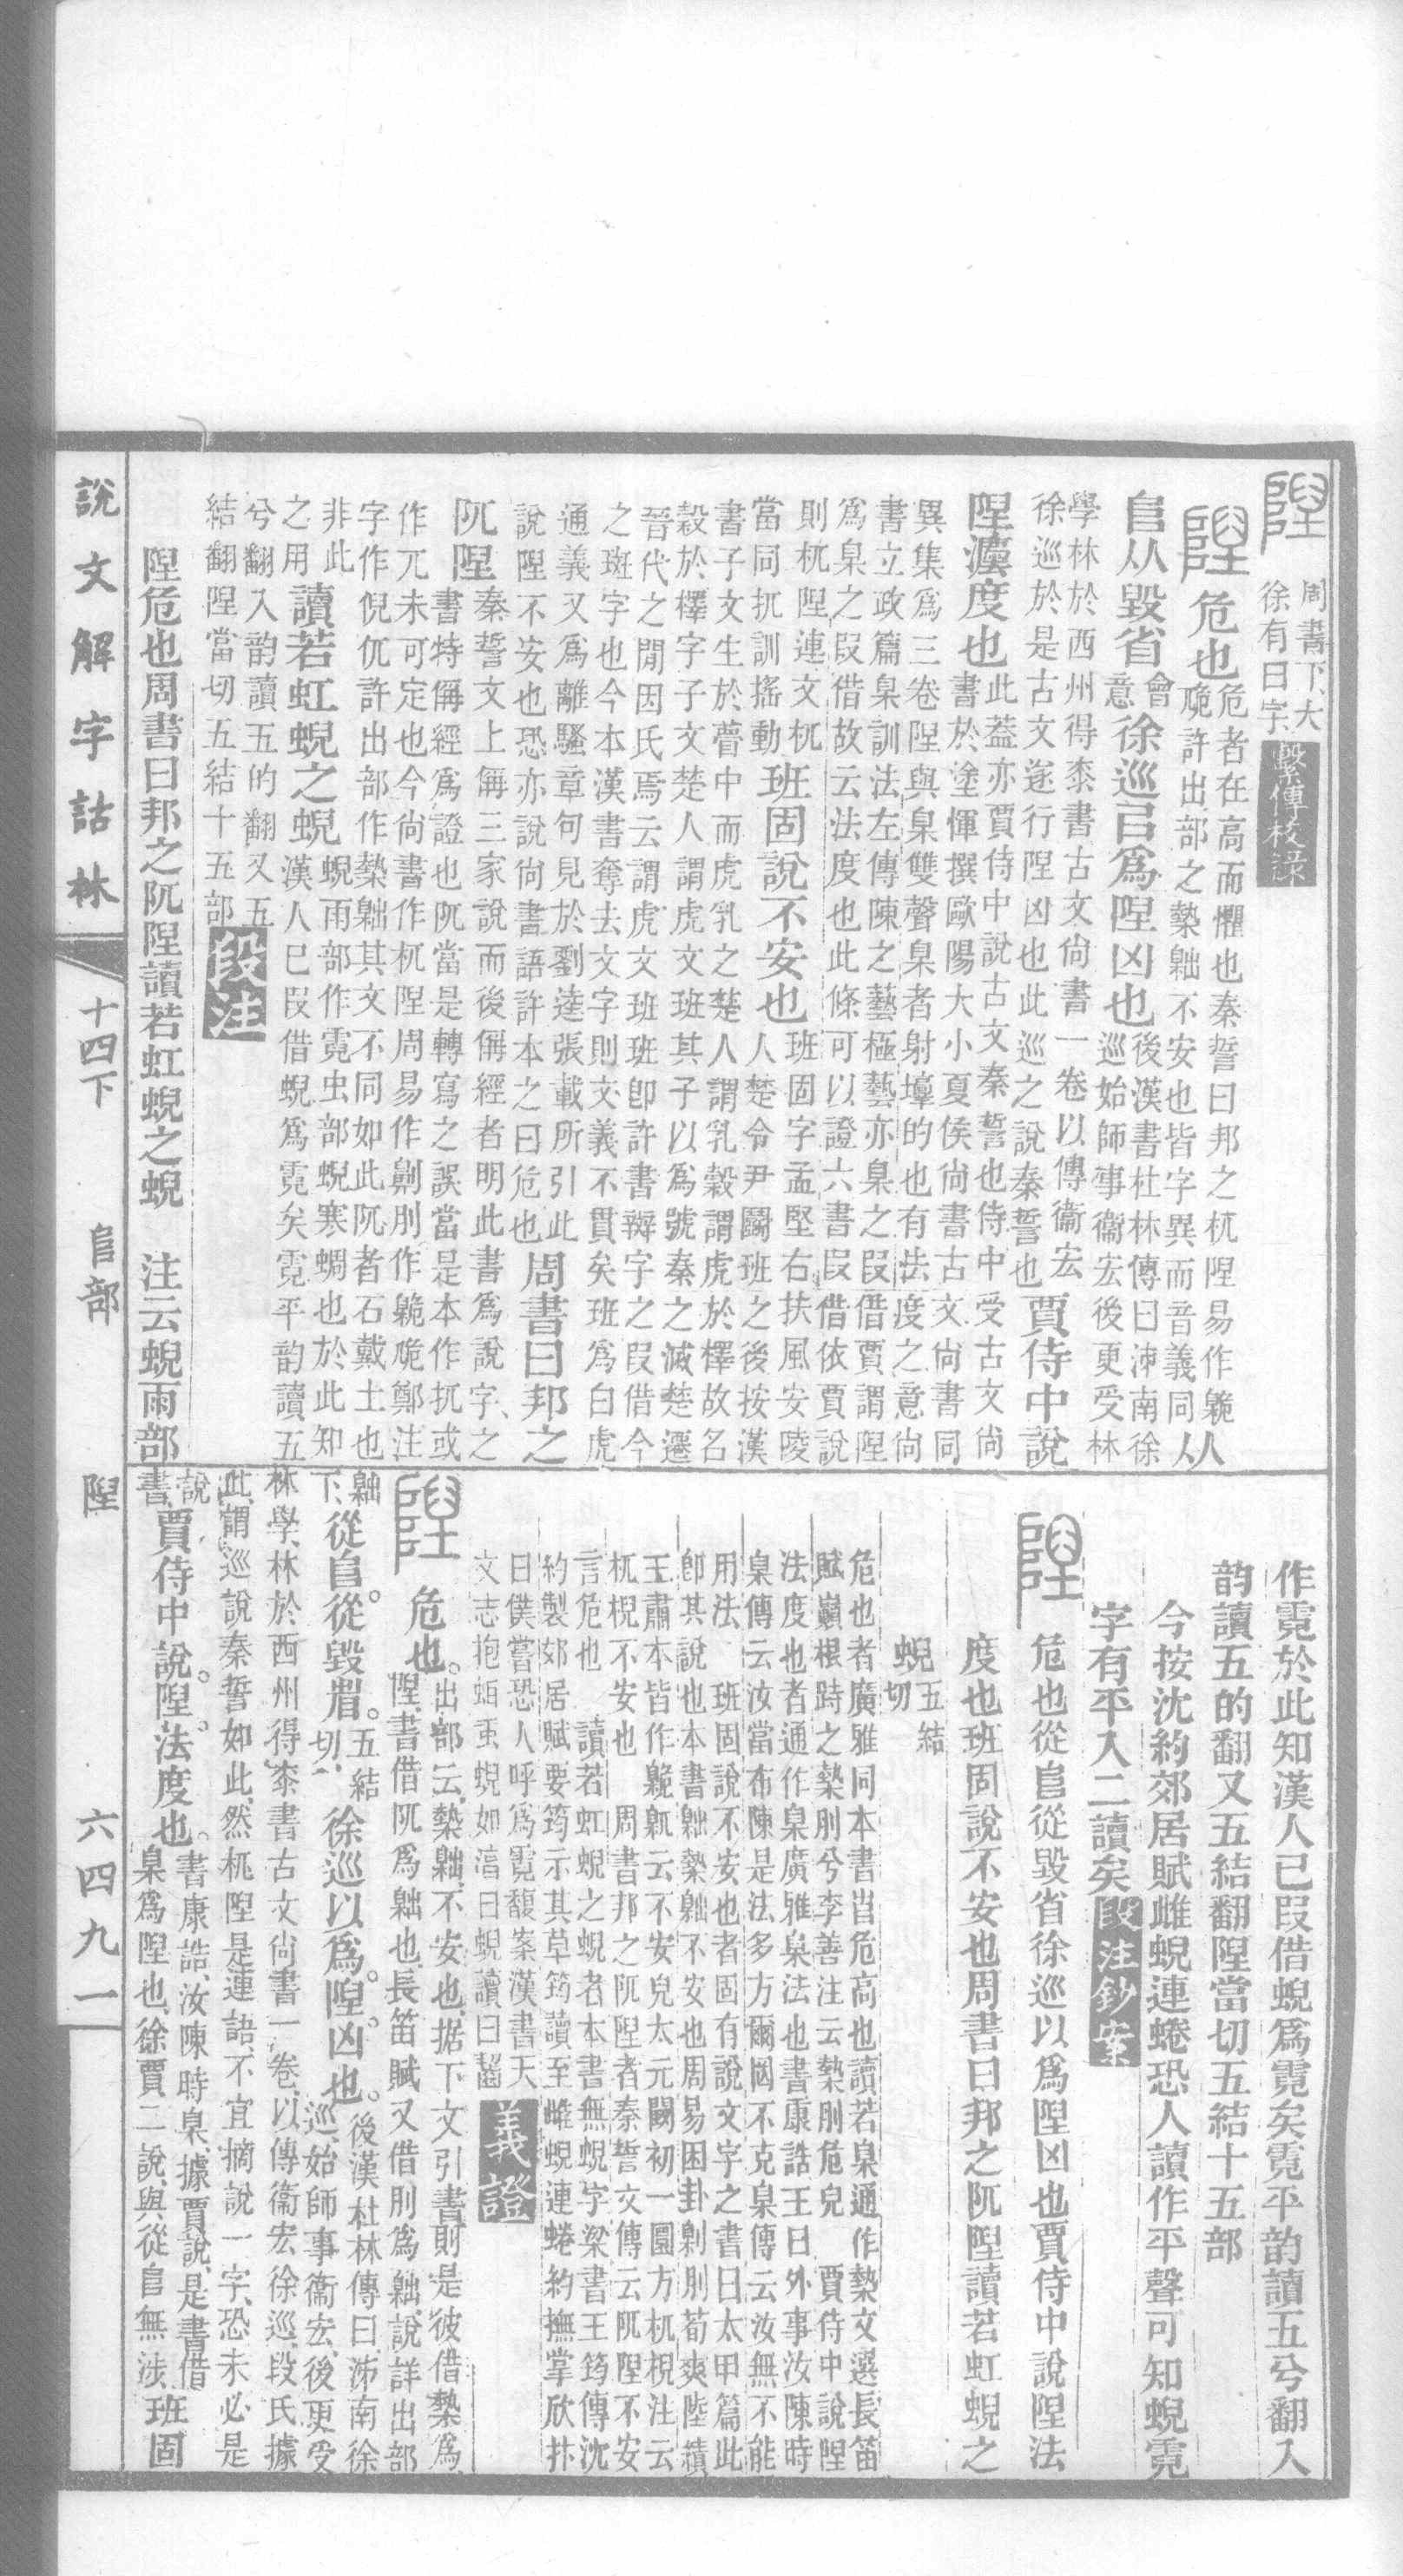 隉 周書下、大
徐有曰字、 繫傳校錄
隉 危也 危者在高而懼也秦誓曰邦之杌隉易作臲
𡰈許出部之槷䵳不安也皆字異而音義同 从
𨸏从毀省 會意 徐巡㠯爲隉凶也 後漢書杜林傳曰沛南徐
巡始師事衞宏後更受林
學林於西州得桼書古文尙書一卷以傳衞宏
徐巡於是古文遂行隉凶也此巡之說秦誓也 賈侍中說
隉灋度也 此蓋亦賈侍中說古文秦誓也侍中受古文尙
書於塗惲撰歐陽大小夏侯尙書古文尙書同
異集爲三卷隉與臬雙聲臬者射壿的也有法度之意尙
書立政篇臬訓法左傳陳之藝極藝亦臬之叚借賈謂隉
爲臬之叚借故云法度也此條可以證六書叚借依賈說
則杌隉連文杌
當同扤訓搖動 班固說不安也 班固字孟堅右扶風安陵
人楚令尹鬬班之後按漢
書子文生於瞢中而虎乳之楚人謂乳穀謂虎於檡故名
穀於檡字子文楚人謂虎文班其子以爲號秦之滅楚遷
晉代之閒因氏焉云謂虎文班班卽許書辬字之叚借今
之班字也今本漢書奪去文字則文義不貫矣班爲白虎
通義又爲離騷章句見於劉逵張載所引此
說隉不安也恐亦說尙書語許本之曰危也 周書曰邦之
阢隉 秦誓文上偁三家說而後偁經者明此書爲說字之
書特偁經爲證也阢當是轉寫之誤當是本作扤或
作兀未可定也今尙書作杌隉周易作劓刖作臲𡰈鄭注
字作倪㐳許出部作槷䵳其文不同如此阢者石戴土也
非此
之用 讀若虹蜺之蜺 蜺雨部作霓虫部蜺寒蜩也於此知
漢人巳叚借蜺爲霓矣霓平韵讀五
兮翻入韵讀五的翻又五
結翻隉當切五結十五部 段注
隉危也周書曰邦之阢隉讀若虹蜺之蜺 注云蜺雨部
作霓於此知漢人已叚借蜺爲霓矣霓平韵讀五兮翻入
韵讀五的翻又五結翻隉當切五結十五部
今按沈約郊居賦雌蜺連蜷恐人讀作平聲可知蜺霓
字有平入二讀矣 段注鈔案
隉 危也從𨸏從毀省徐巡以爲隉凶也賈侍中說隉法
度也班固說不安也周書曰邦之阢隉讀若虹蜺之
蜺 五結切
危也者廣雅同本書𡴎危高也讀若臬通作槷文選長笛
賦巓根跱之槷刖兮李善注云槷刖危皃 賈侍中說隉
法度也者通作臬廣雅臬法也書康誥王曰外事汝陳時
臬傳云汝當布陳是法多方爾罔不克臬傳云汝無不能
用法 班固說不安也者固有說文字之書曰太甲篇此
卽其說也本書䵳槷䵳不安也周易困卦劓刖荀爽陸績
王肅本皆作臲𡰈云不安皃太元闕初一圜方杌棿注云
杌棿不安也 周書邦之阢隉者秦誓文傳云阢隉不安
言危也 讀若虹蜺之蜺者本書無蜺字梁書王筠傳沈
約製郊居賦要筠示其草筠讀至雌蜺連蜷約撫掌欣抃
曰僕嘗恐人呼爲霓馥案漢書天
文志抱珥虿蜺如湻曰蜺讀曰齧 義證
隉 危也。 出部云、槷䵳、不安也、据下文引書、則是彼借槷爲
隉、書借阢爲䵳也、長笛賦又借刖爲䵳、說詳出部
䵳下、 從𨸏。從毀省。 五結切、 徐巡以爲。隉。凶也。 後漢杜林傳曰、沛南徐
巡、始師事衞宏、後更受
林學、林於西州得桼書古文尙書一卷、以傳衞宏徐巡、段氏據
此、謂巡說秦誓如此、然杌隉是連語、不宜摘說一字、恐未必是
說書、 賈侍中說。隉。法度也。 書康誥、汝陳時臬、據賈說、是書借
臬爲隉也、徐賈二說、與從𨸏無涉、 班固
說文解字詁林 十四下 𨸏部 隉 六四九一